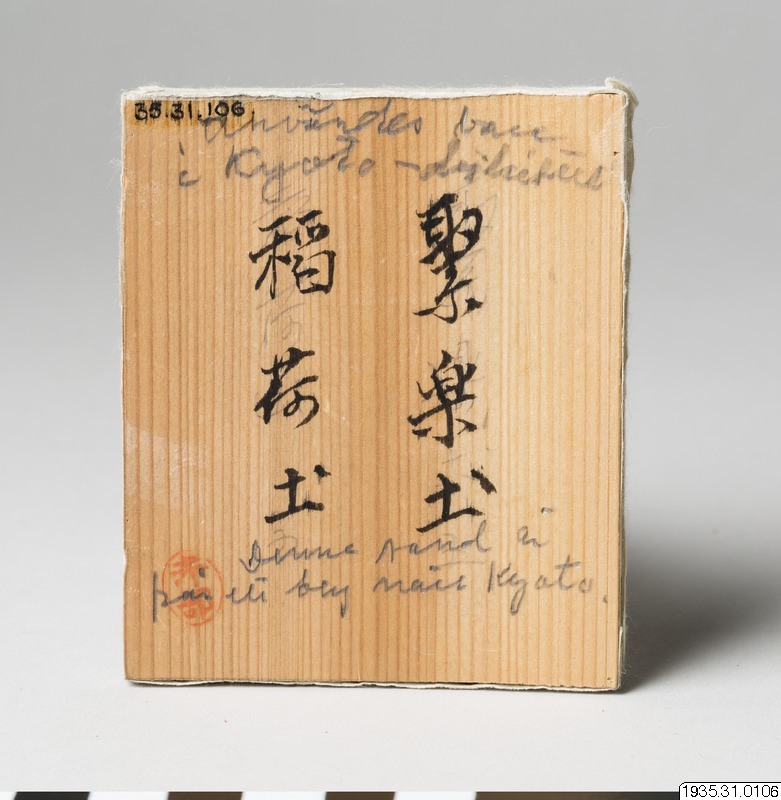 35.31.106
Användes bara
i Kyoto-distriktet
聚楽圡
稲荷圡
Denna sand är
från ett berg nära Kyoto.
1935.31.0106